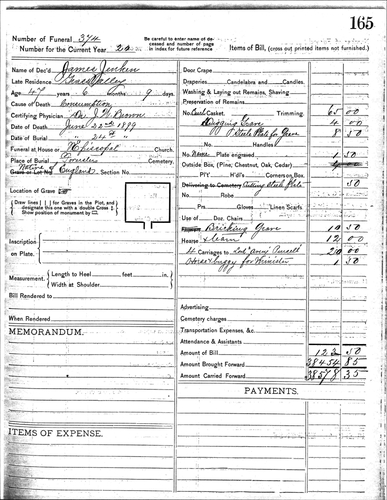 165
Number of Funeral 374
Number for the Current Year 20
Be careful to enter name of deceased and number of page in index for future reference
Items of Bill, (cross out printed items not furnished.)
Name of Dec'd James Jenkin
Late Residence Grass Valley
Age 47 years 6 9 days.
Cause of Death Consumption
Certifying Physician Dr J W Brown
Date of Death June 22nd 1899
Date of Burial " 24th "
Funeral at House or Episcopal Church.
Place of Burial Cemetery,
Grave or Lot No. Section No.
Native of England
Location of Grave
Draw lines for Graves in the Plot, and designate this one with a double Cross
Show position of monument by
Inscription on Plate.
Measurement. Length to Heel feet in.
Width at Shoulder
Bill Rendered to
When Rendered
MEMORANDUM.
ITEMS OF EXPENSE.
Door Crape
Draperies Candelabra and Candles.
Washing & Laying out Remains, Shaving
Preservation of Remains
No. Casket. Trimming. 65 00
Digging Grave 4 00
Slate Plate for Grave 8 50
No. Handles
No. Name Plate engraved 1 50
Outside Box, (Pine, Chestnut, Oak, Cedar)
P'l'y. H'dl's. Corners on Box,
Delivering to Cemetery Cutting Slate Plate 50
No. Robe
Prs. Gloves Linen Scarfs
Use of Doz. Chairs
Bricking Grave 10 50
Hearse & team 12 00
4 Carriages to 20 00
Horse & buggy for Minister 1 50
Advertising
Cemetery charges
Transportation Expenses, &c.
Attendance & Assistants
Amount of Bill 123 50
Amount Brought Forward 38454 85
Amount Carried Forward 38578 35
PAYMENTS.